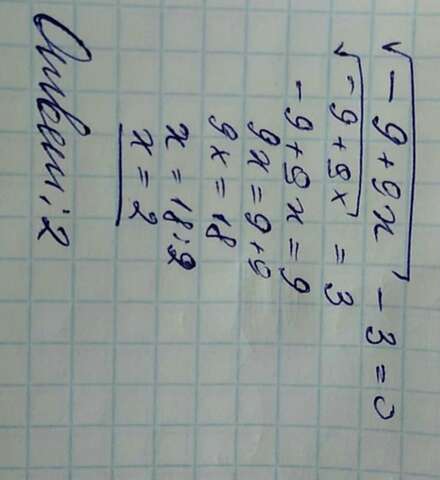 √-9+9x - 3 = 0
√-9+9x = 3
-9+9x = 9
9x = 9+9
9x = 18
x = 18:9
x = 2
Ответ: 2